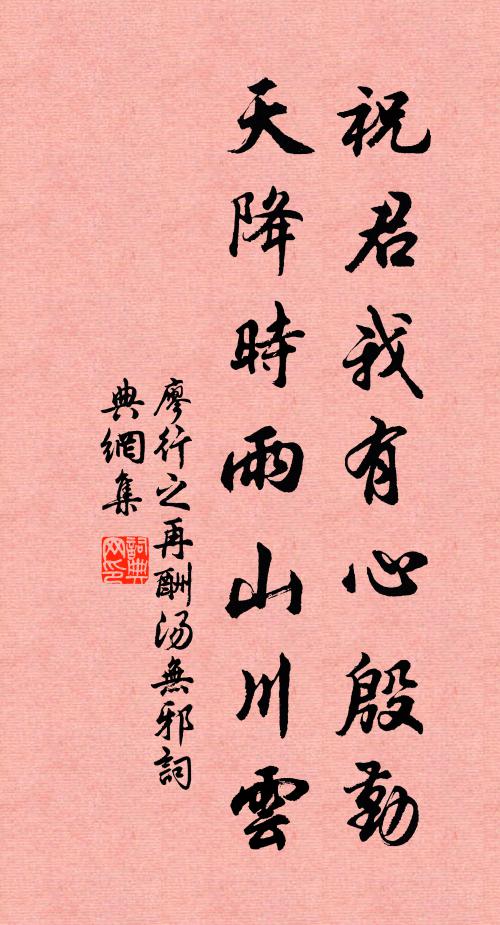 祝君我有心殷勤
天降時雨山川雲
廖行之再酬汤無邪詞
典網集
詞典
网印